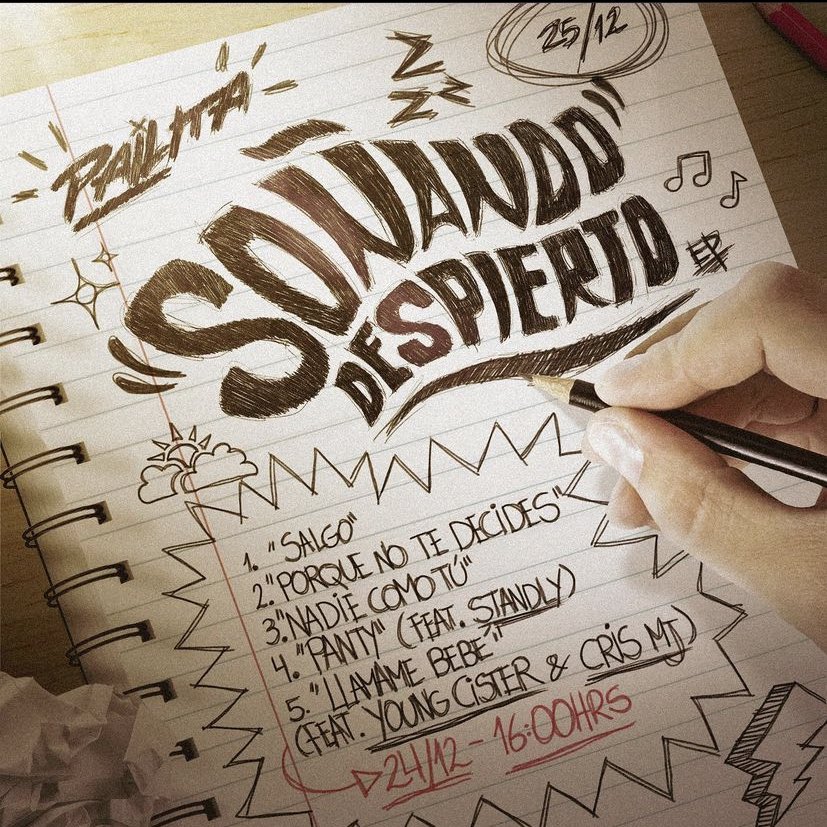 PAILITA
25/12
Z
Z Z
SOÑANDO
DESPIERTO
EP
1. "SALGO"
2. "PORQUE NO TE DECIDES"
3. "NADIE COMO TÚ"
4. "PANTY" (FEAT. STANDLY)
5. "LLAMAME BEBÉ"
(FEAT. YOUNG CISTER & CRIS MJ)
24/12 - 16:00HRS